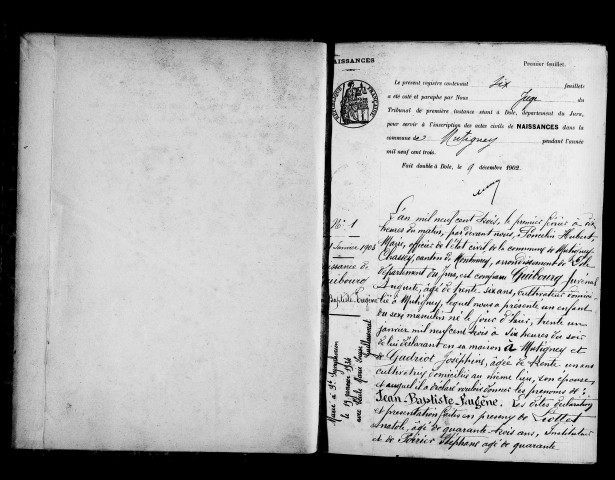 NAISSANCES
Premier feuillet.
Le présent registre contenant six feuillets
a été coté et paraphé par Nous Juge du
Tribunal de première instance séant à Dole, département du Jura,
pour servir à l'inscription des actes civils de NAISSANCES dans la
commune de Mutigney pendant l'année
mil neuf cent trois.
Fait double à Dole, le 9 décembre 1902.
N° 1
31 Janvier 1903
Naissance de
Guibourg
Jean Baptiste Eugène
Marié à
le 19 janvier 1926
avec
L'an mil neuf cent trois, le premier février à dix
heures du matin, par devant nous, Poncelin Hubert
Marie, officier de l'état civil de la commune de Mutigney
Chassey, canton de Montmirey, arrondissement de Dole
département du Jura, est comparu Guibourg Juvénal
Auguste, âgé de trente six ans, cultivateur domici-
lié à Mutigney, lequel nous a présenté un enfant
du sexe masculin né le jour d'hier, trente un
janvier mil neuf cent trois à six heures du soir
de lui déclarant en sa maison à Mutigney et
de Gadriot Joséphine, âgée de trente un ans
cultivatrice domiciliée au même lieu, son épouse
et auquel il a déclaré vouloir donner les prénoms de :
Jean-Baptiste-Eugène. Les dites déclaration
et présentation faites en présence de Liottet
Anatole, âgé de quarante trois ans, Instituteur
et de Poirier Stéphane âgé de quarante